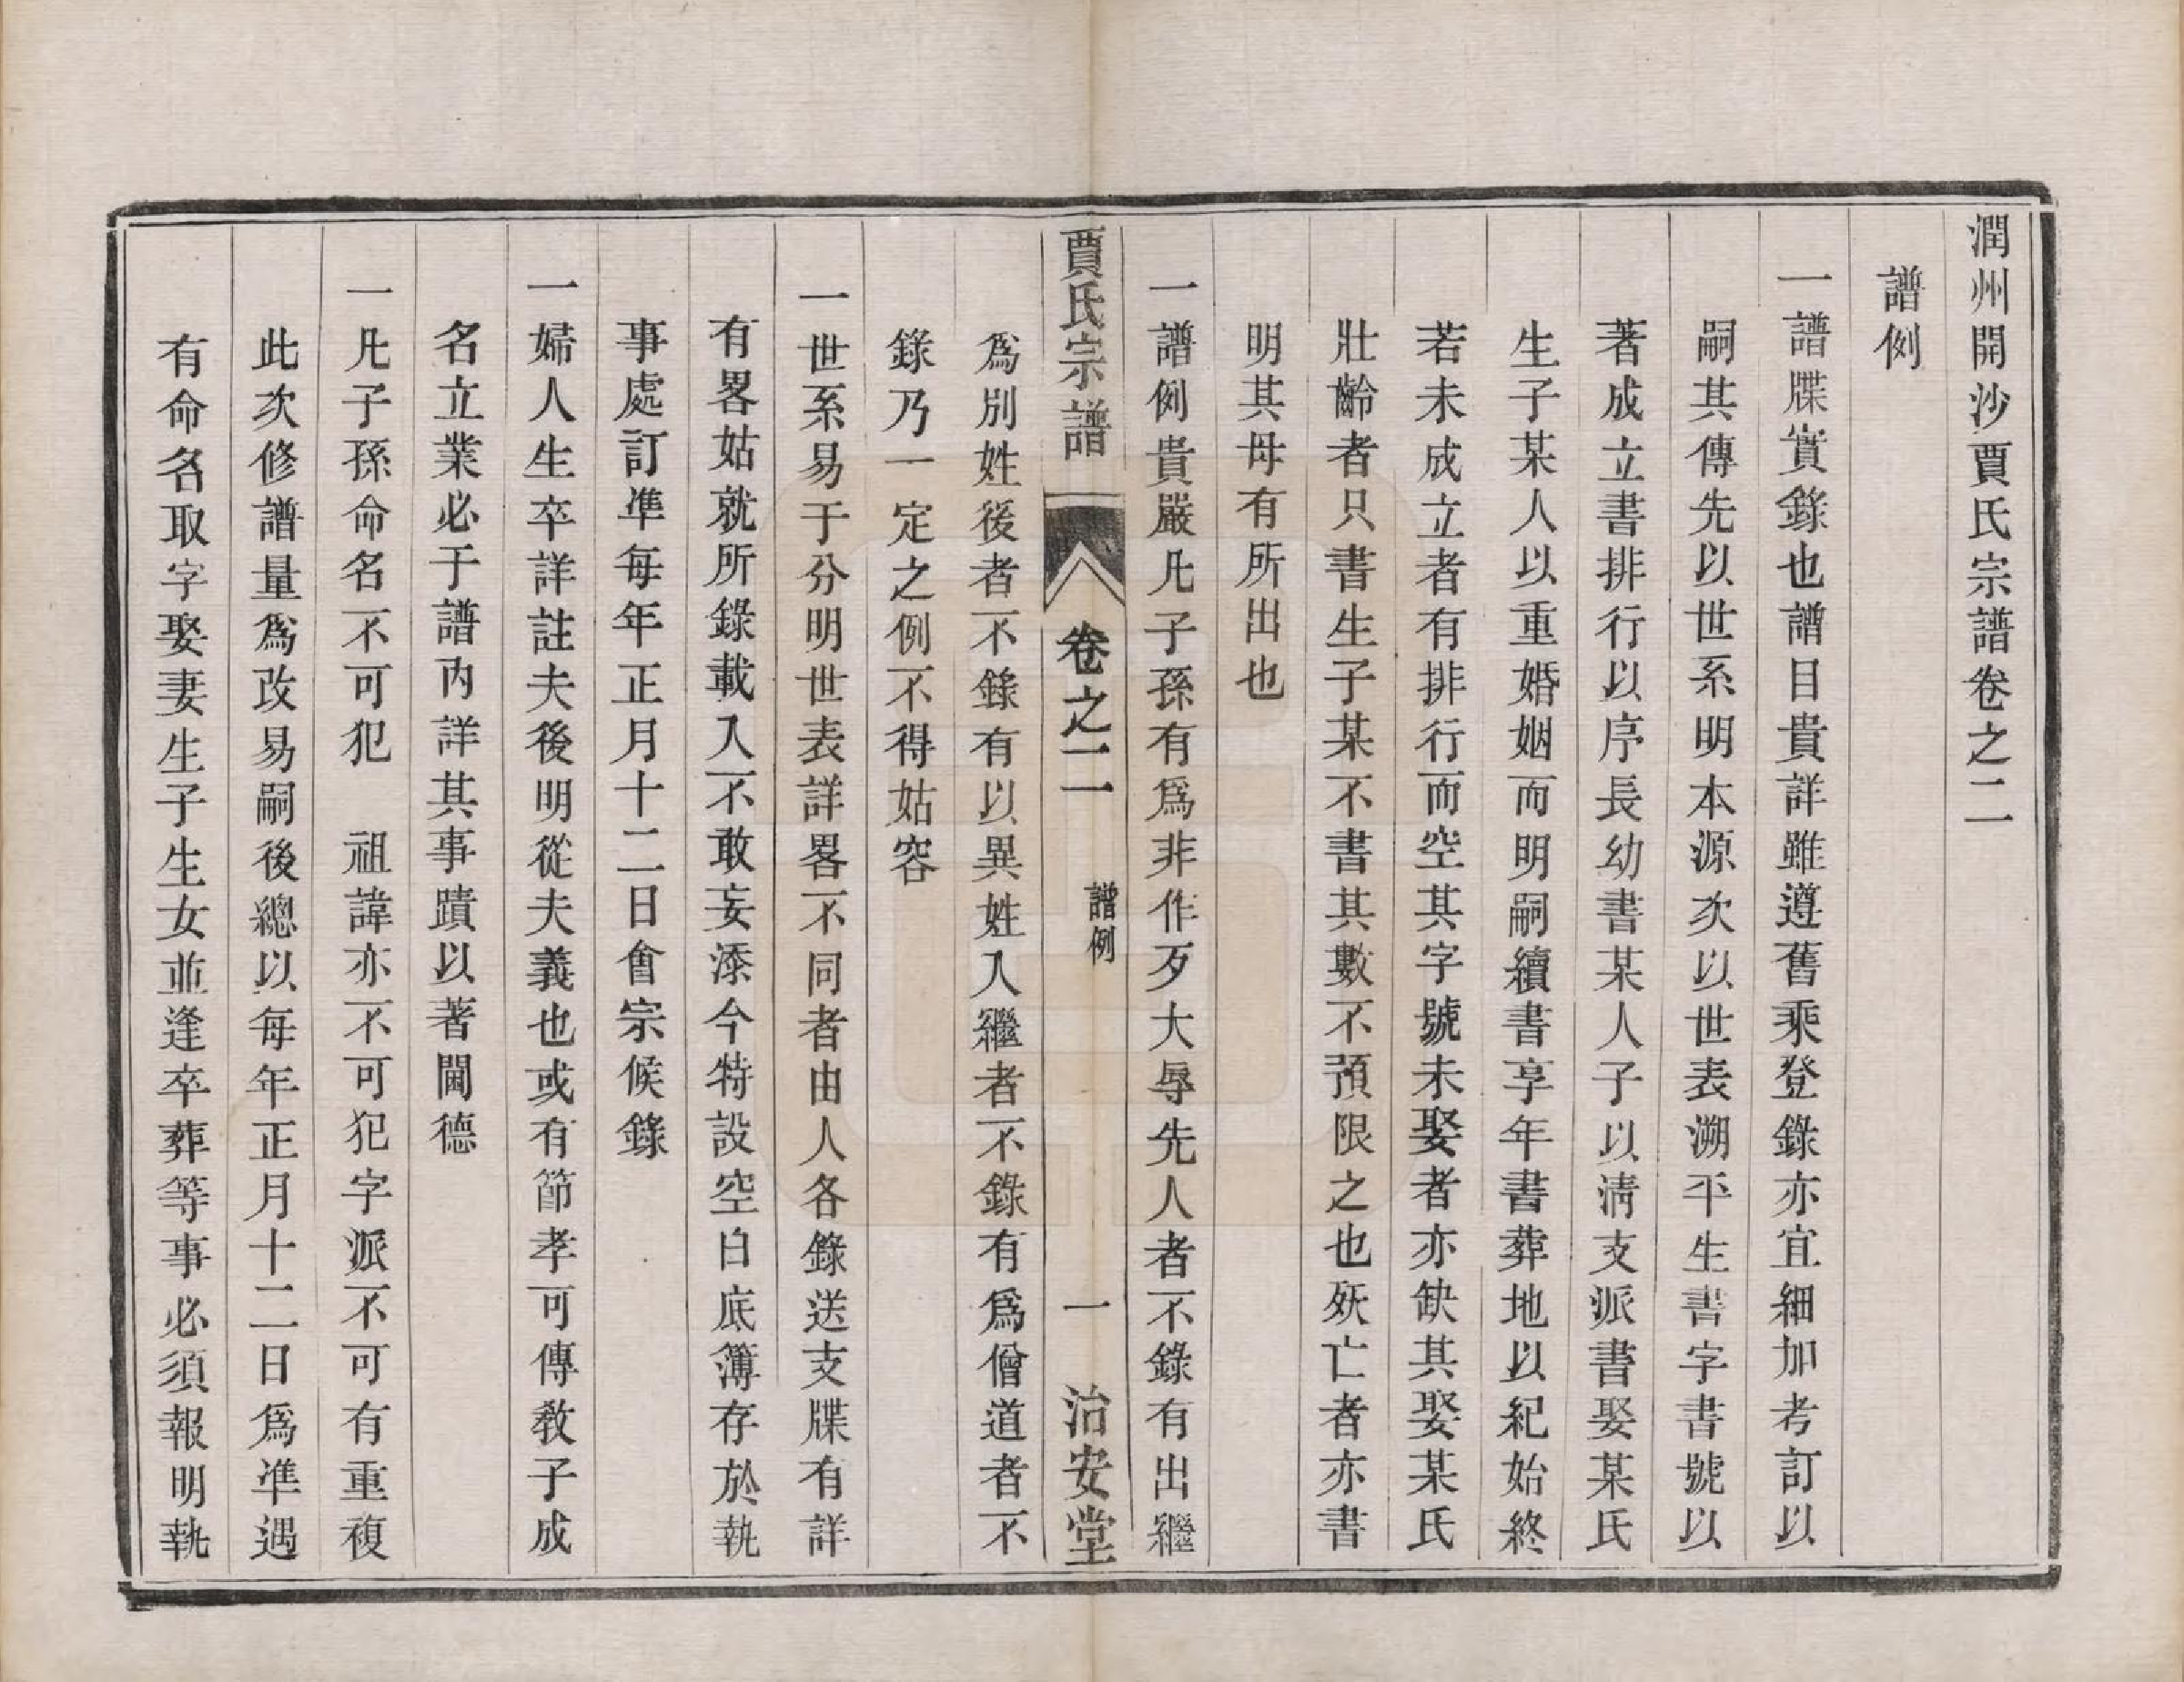 潤州開沙賈氏宗譜卷之二
譜例
一譜牒實錄也譜目貴詳雖遵舊乘登錄亦宜細加考訂以
嗣其傳先以世系明本源次以世表溯平生書字書號以
著成立書排行以序長幼書某人子以清支派書娶某氏
生子某人以重婚姻而明嗣續書享年書葬地以紀始終
若未成立者有排行而空其字號未娶者亦缺其娶某氏
壯齡者只書生子某不書其數不預限之也殀亡者亦書
明其母有所出也
一譜例貴嚴凡子孫有為非作歹大辱先人者不錄有出繼
賈氏宗譜 卷之二 譜例 一 治安堂
為別姓後者不錄有以異姓入繼者不錄有為僧道者不
錄乃一定之例不得姑容
一世系易于分明世表詳畧不同者由人各錄送支牒有詳
有畧姑就所錄載入不敢妄添今特設空白底簿存於執
事處訂準每年正月十二日會宗候錄
一婦人生卒詳註夫後明從夫義也或有節孝可傳教子成
名立業必于譜內詳其事蹟以著閫德
一凡子孫命名不可犯 祖諱亦不可犯字派不可有重複
此次修譜量為改易嗣後總以每年正月十二日為準遇
有命名取字娶妻生子生女並逢卒葬等事必須報明執